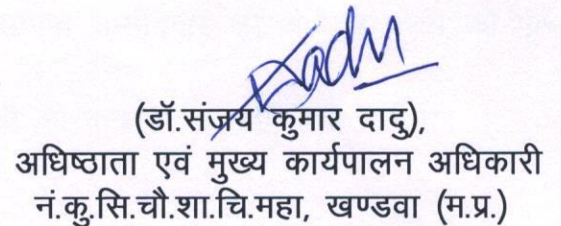 (डॉ.संजय कुमार दादु),
अधिष्ठाता एवं मुख्य कार्यपालन अधिकारी
नं.कु.सि.चौ.शा.चि.महा, खण्डवा (म.प्र.)